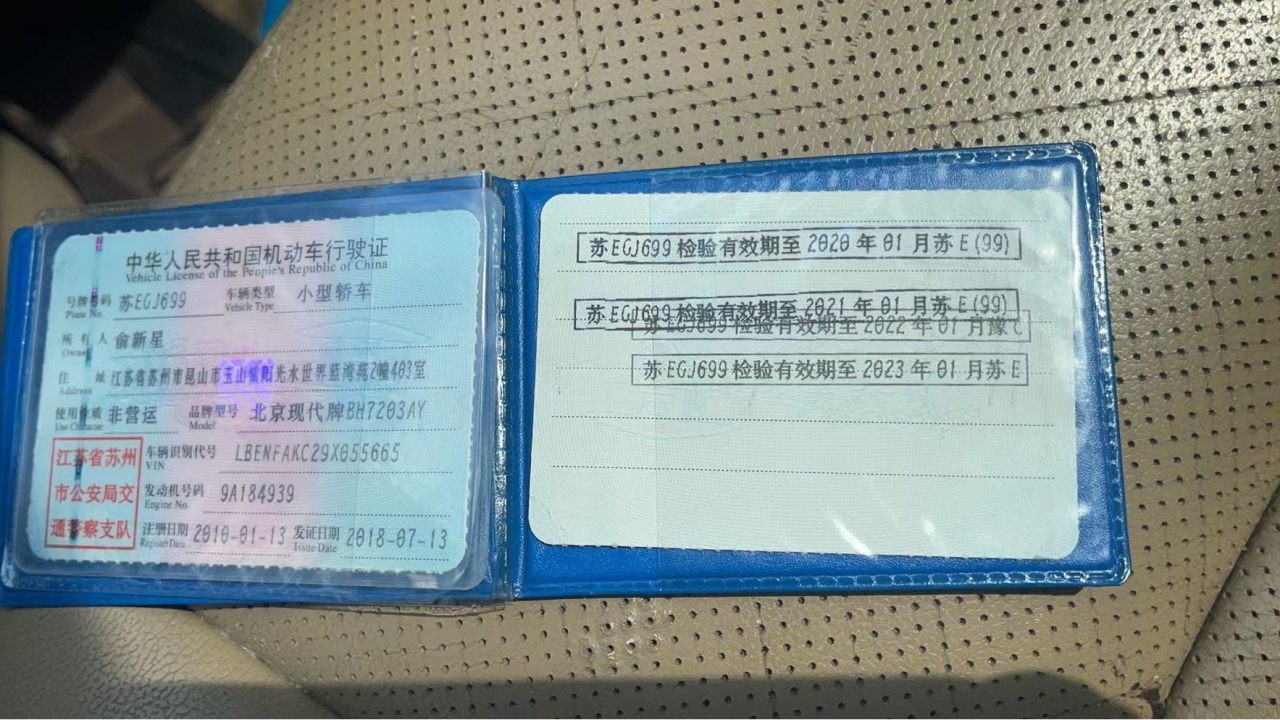 中华人民共和国机动车行驶证
Vehicle License of the People's Republic of China
号牌号码 苏EGJ699 车辆类型 小型轿车
Plate No. Vehicle Type
所有人 俞新星
Owner
住址 江苏省苏州市昆山市玉山 光水世界蓝湾苑2幢403室
Address
使用性质 非营运 品牌型号 北京现代牌BH7203AY
Use Character Model
江苏省苏州
市公安局交
通警察支队
车辆识别代号 LBENFAKC29X055665
VIN
发动机号码 9A184939
Engine No.
注册日期 2010-01-13 发证日期 2018-07-13
Register Date Issue Date
苏EGJ699检验有效期至2020年01月苏E(99)
苏EGJ699检验有效期至2021年01月苏E(99)
苏EGJ699检验有效期至2022年01月豫C
苏EGJ699检验有效期至2023年01月苏E